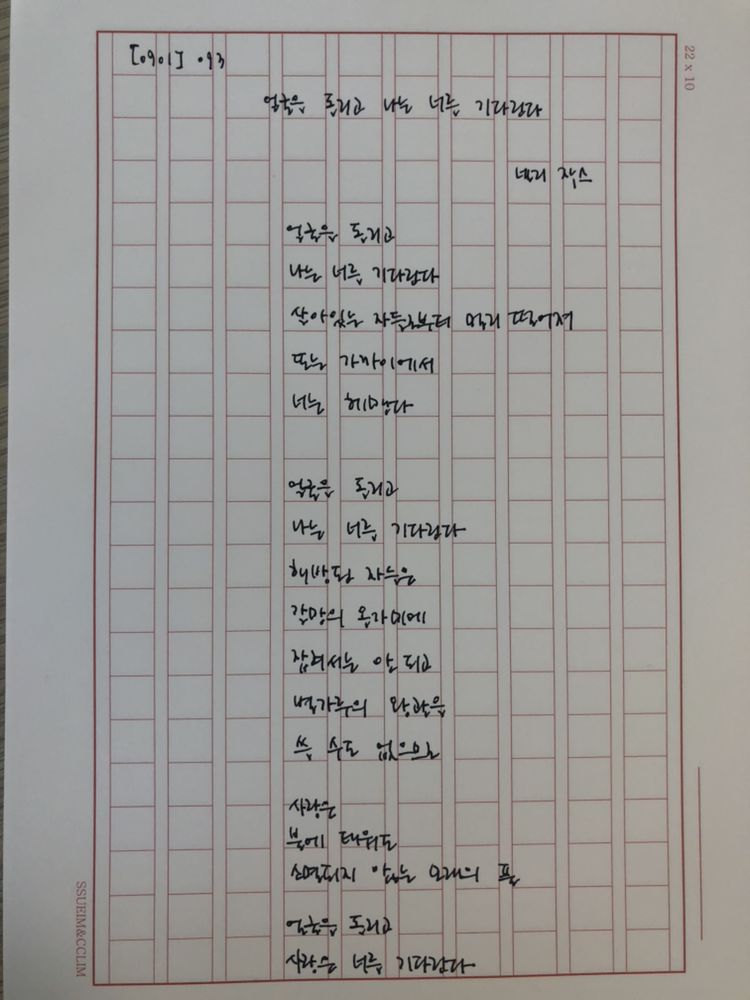 [0901] .93
22 x 10
얼굴을 돌리고 나는 너를 기다린다
넬리 작스
얼굴을 돌리고
나는 너를 기다린다
살아있는 자들로부터 멀리 떨어져
또는 가까이에서
너는 헤맨다
얼굴을 돌리고
나는 너를 기다린다
해방된 자들은
갈망의 올가미에
잡혀서는 안 되고
별가루의 왕관을
쓸 수도 없으므로
사랑은
불에 태워도
소멸되지 않는 모래의 풀
얼굴을 돌리고
사랑은 너를 기다린다
SSUEIM&CCLIM